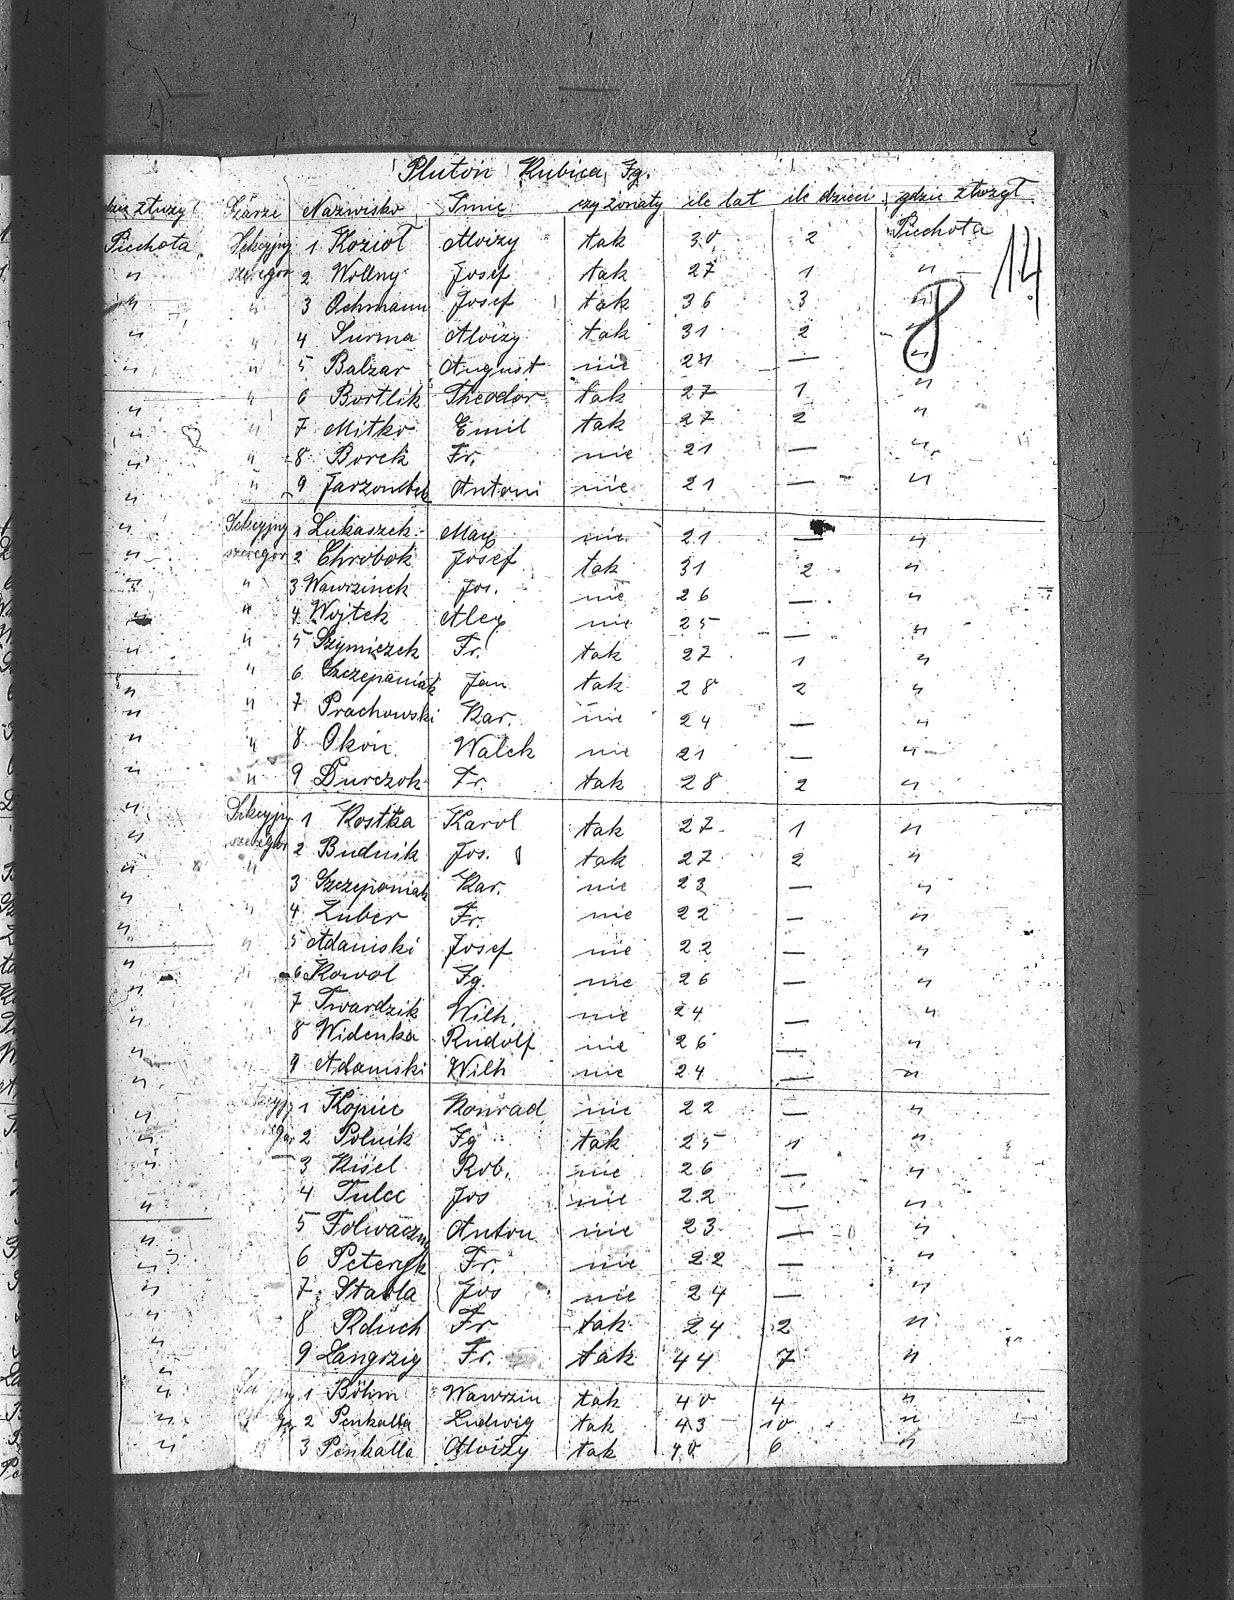 Pluton Kubica, Jg.
Szarże Nazwisko Imię czy żonaty ile lat ile dzieci gdzie służył
Piechota Sekcyjny 1 Kozioł Aloizy tak 30 2 Piechota
" szeregow 2 Wollny Josef tak 27 1 " 14
" " 3 Ochmann Josef tak 36 3 " 8
" " 4 Surma Aloizy tak 31 2 "
" " 5 Balzar August nie 24 — "
" " 6 Bortlik Theodor tak 27 1 "
" " 7 Mitko Emil tak 27 2 "
" " 8 Borek Fr. nie 21 — "
" " 9 Antoni nie 21 — "
" Sekcyjny 1 Lukaszek Max nie 21 — "
" szeregow 2 Chrobok Josef tak 31 2 "
" " 3 Wawrzinek Jos. nie 26 — "
" " 4 Wojtek Alex nie 25 — "
" " 5 Szymiczek Fr. tak 27 1 "
" " 6 Szczepaniak Jan tak 28 2 "
" " 7 Prachowski Kar. nie 24 — "
" " 8 Okoń Walek nie 21 — "
" " 9 Durczok Fr. tak 28 2 "
" Sekcyjny 1 Kostka Karol tak 27 1 "
" szeregow 2 Budnik Jos. tak 27 2 "
" " 3 Szczepaniak Kar. nie 23 — "
" " 4 Zuber Fr. nie 22 — "
" " 5 Adamski Josef nie 22 — "
" " 6 Kowol Jg. nie 26 — "
" " 7 Twardzik Wilh. nie 24 — "
" 8 Widenka Rudolf nie 26 — "
" 9 Adamski Wilh nie 24 — "
" 1 Kopiec Konrad nie 22 — "
" 2 Polnik Jg tak 25 1 "
" 3 Kisel Rob. nie 26 — "
" 4 Tulec Jos nie 22 — "
" 5 Folwaczny Anton nie 23 — "
" 6 Peteryk Fr. nie 22 — "
" 7 Stabla Jos nie 24 — "
" 8 Rduch Fr tak 24 2 "
" 9 Langrzig Fr. tak 44 7 "
" 1 Böhm Wawrzin tak 40 4 "
" 2 Penkalla Ludwig tak 43 10 "
" 3 Penkalla Aloizy tak 40 6 "